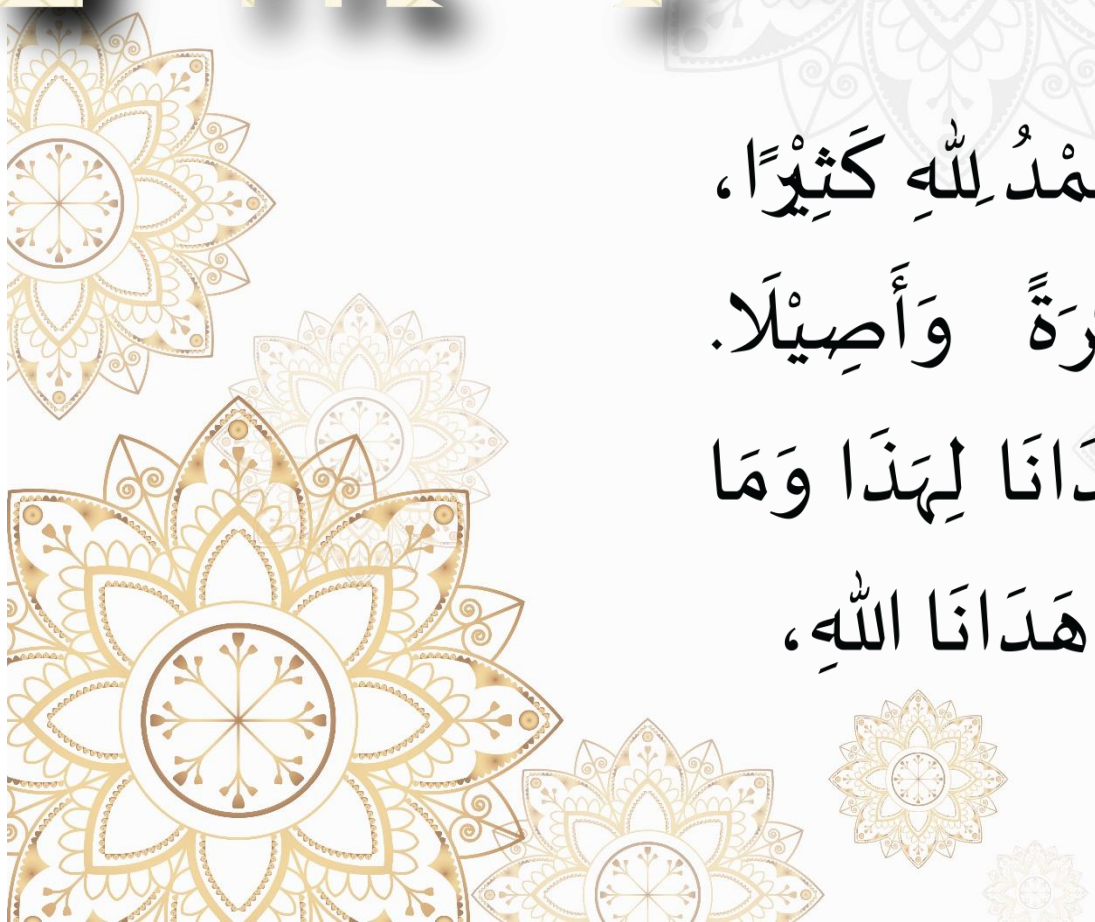 مْدُ لِلّٰهِ كَثِيْرًا،
رَةً وَأَصِيْلًا.
دَانَا لِهَذَا وَمَا
هَدَانَا اللّٰهِ،